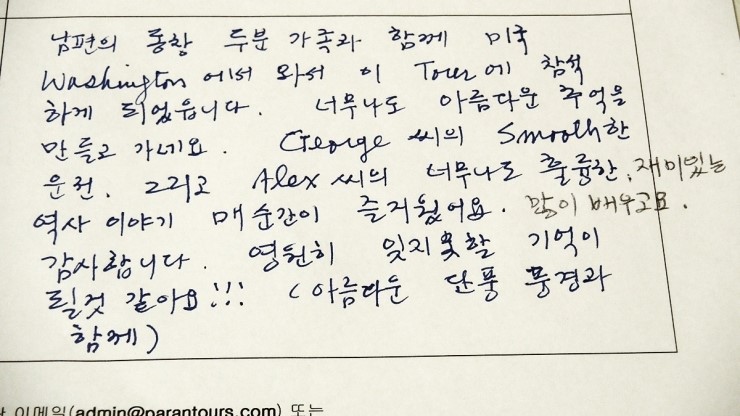 남편의 동창 두분 가족과 함께 미국
Washington 에서 와서 이 Tour에 참석
하게 되었읍니다. 너무나도 아름다운 추억을
만들고 가네요. George 씨의 Smooth한
운전. 그리고 Alex 씨의 너무나도 훌륭한, 재미있는
역사 이야기 매순간이 즐거웠어요. 많이 배우고요.
감사합니다. 영원히 잊지못할 기억이
될것 같아요!!! (아름다운 단풍 풍경과
함께)
이메일(admin@parantours.com) 또는